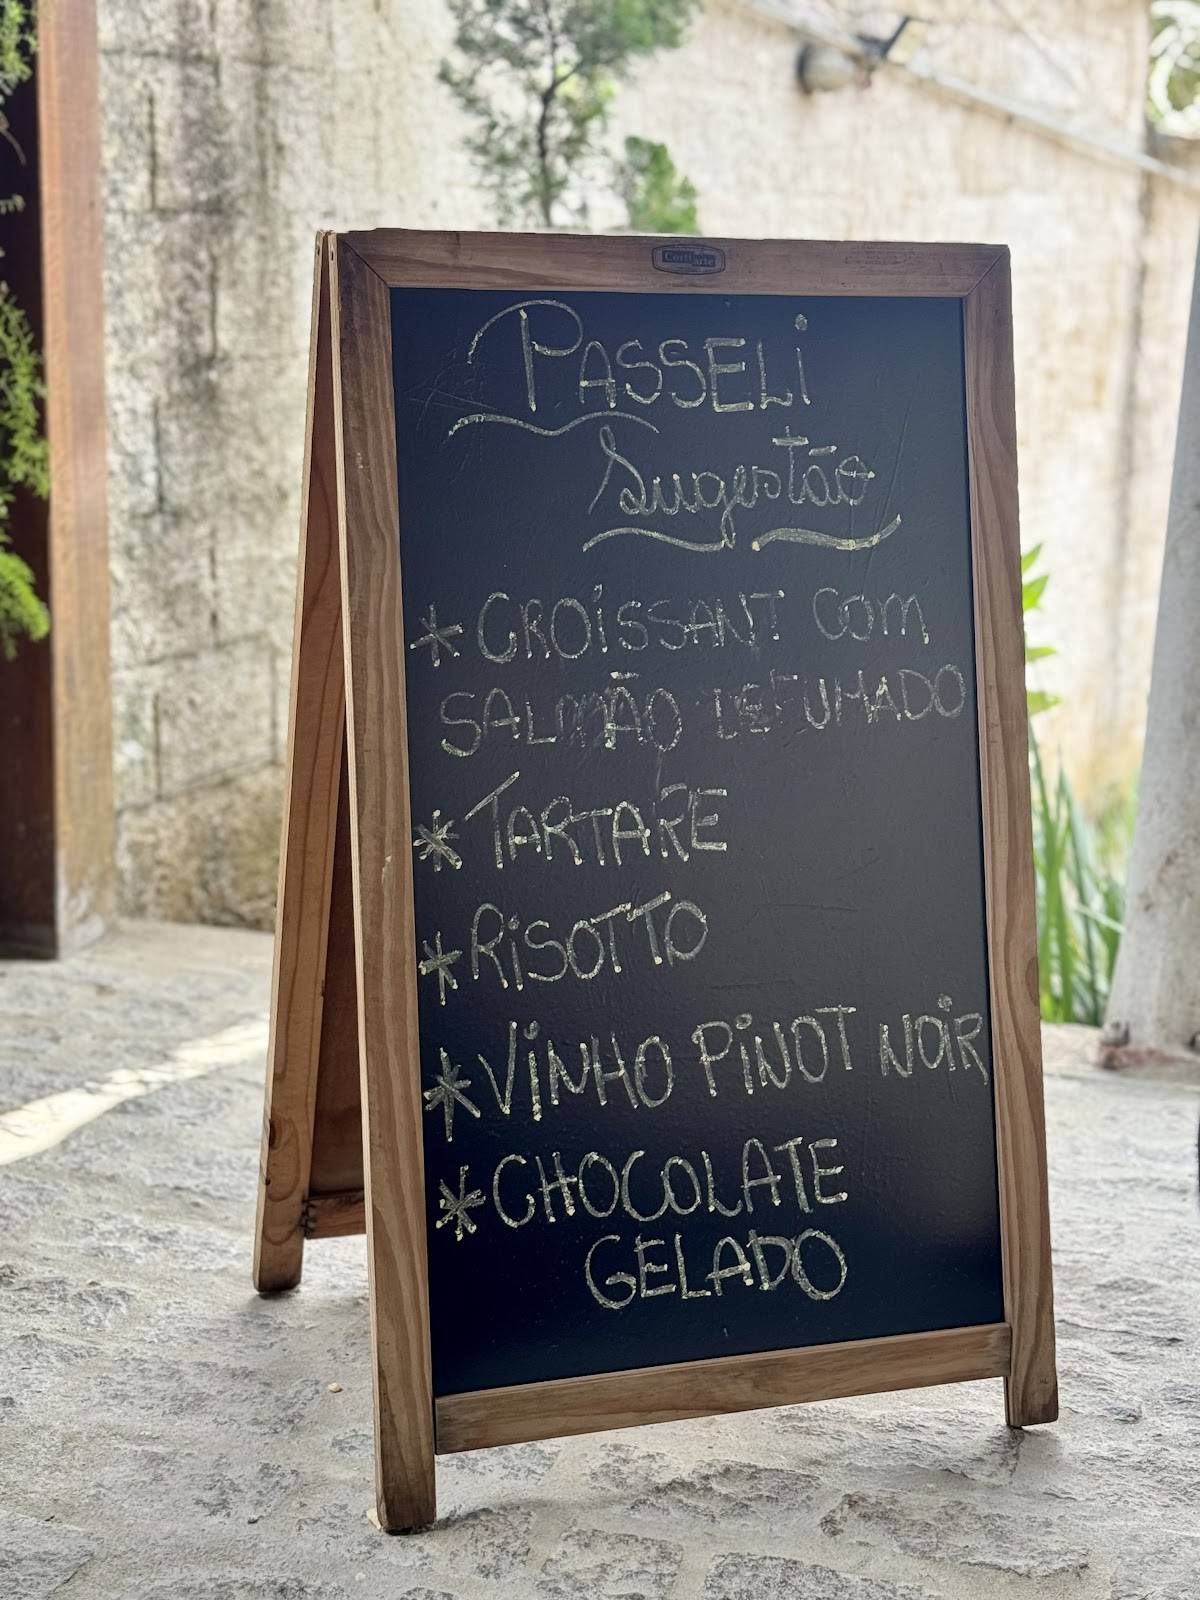 Cortiarte
PASSELi
Sugestão
* CROiSSANT COM
SALMÃO DEFUMADO
* TARTARE
* RiSOTTO
* ViNHO PiNOT NOiR
* CHOCOLATE
GELADO